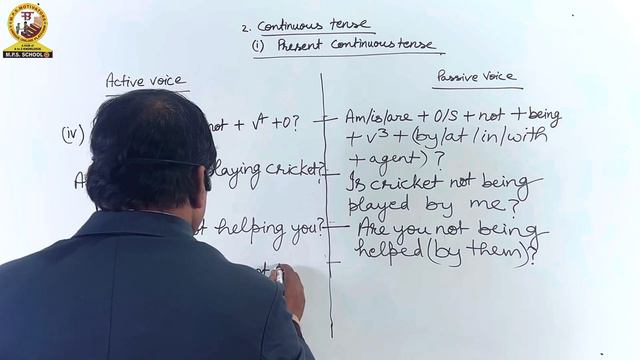 2. Continuous tense
(i) Present Continuous tense
Active voice
Passive voice
(iv) not + V⁴ + O?
Am/is/are + O/S + not + being
+ V³ + (by/at/in/with
+ agent)?
playing cricket?
Is cricket not being
played by me?
helping you?
Are you not being
helped (by them)?
M.P.S. SCHOOL